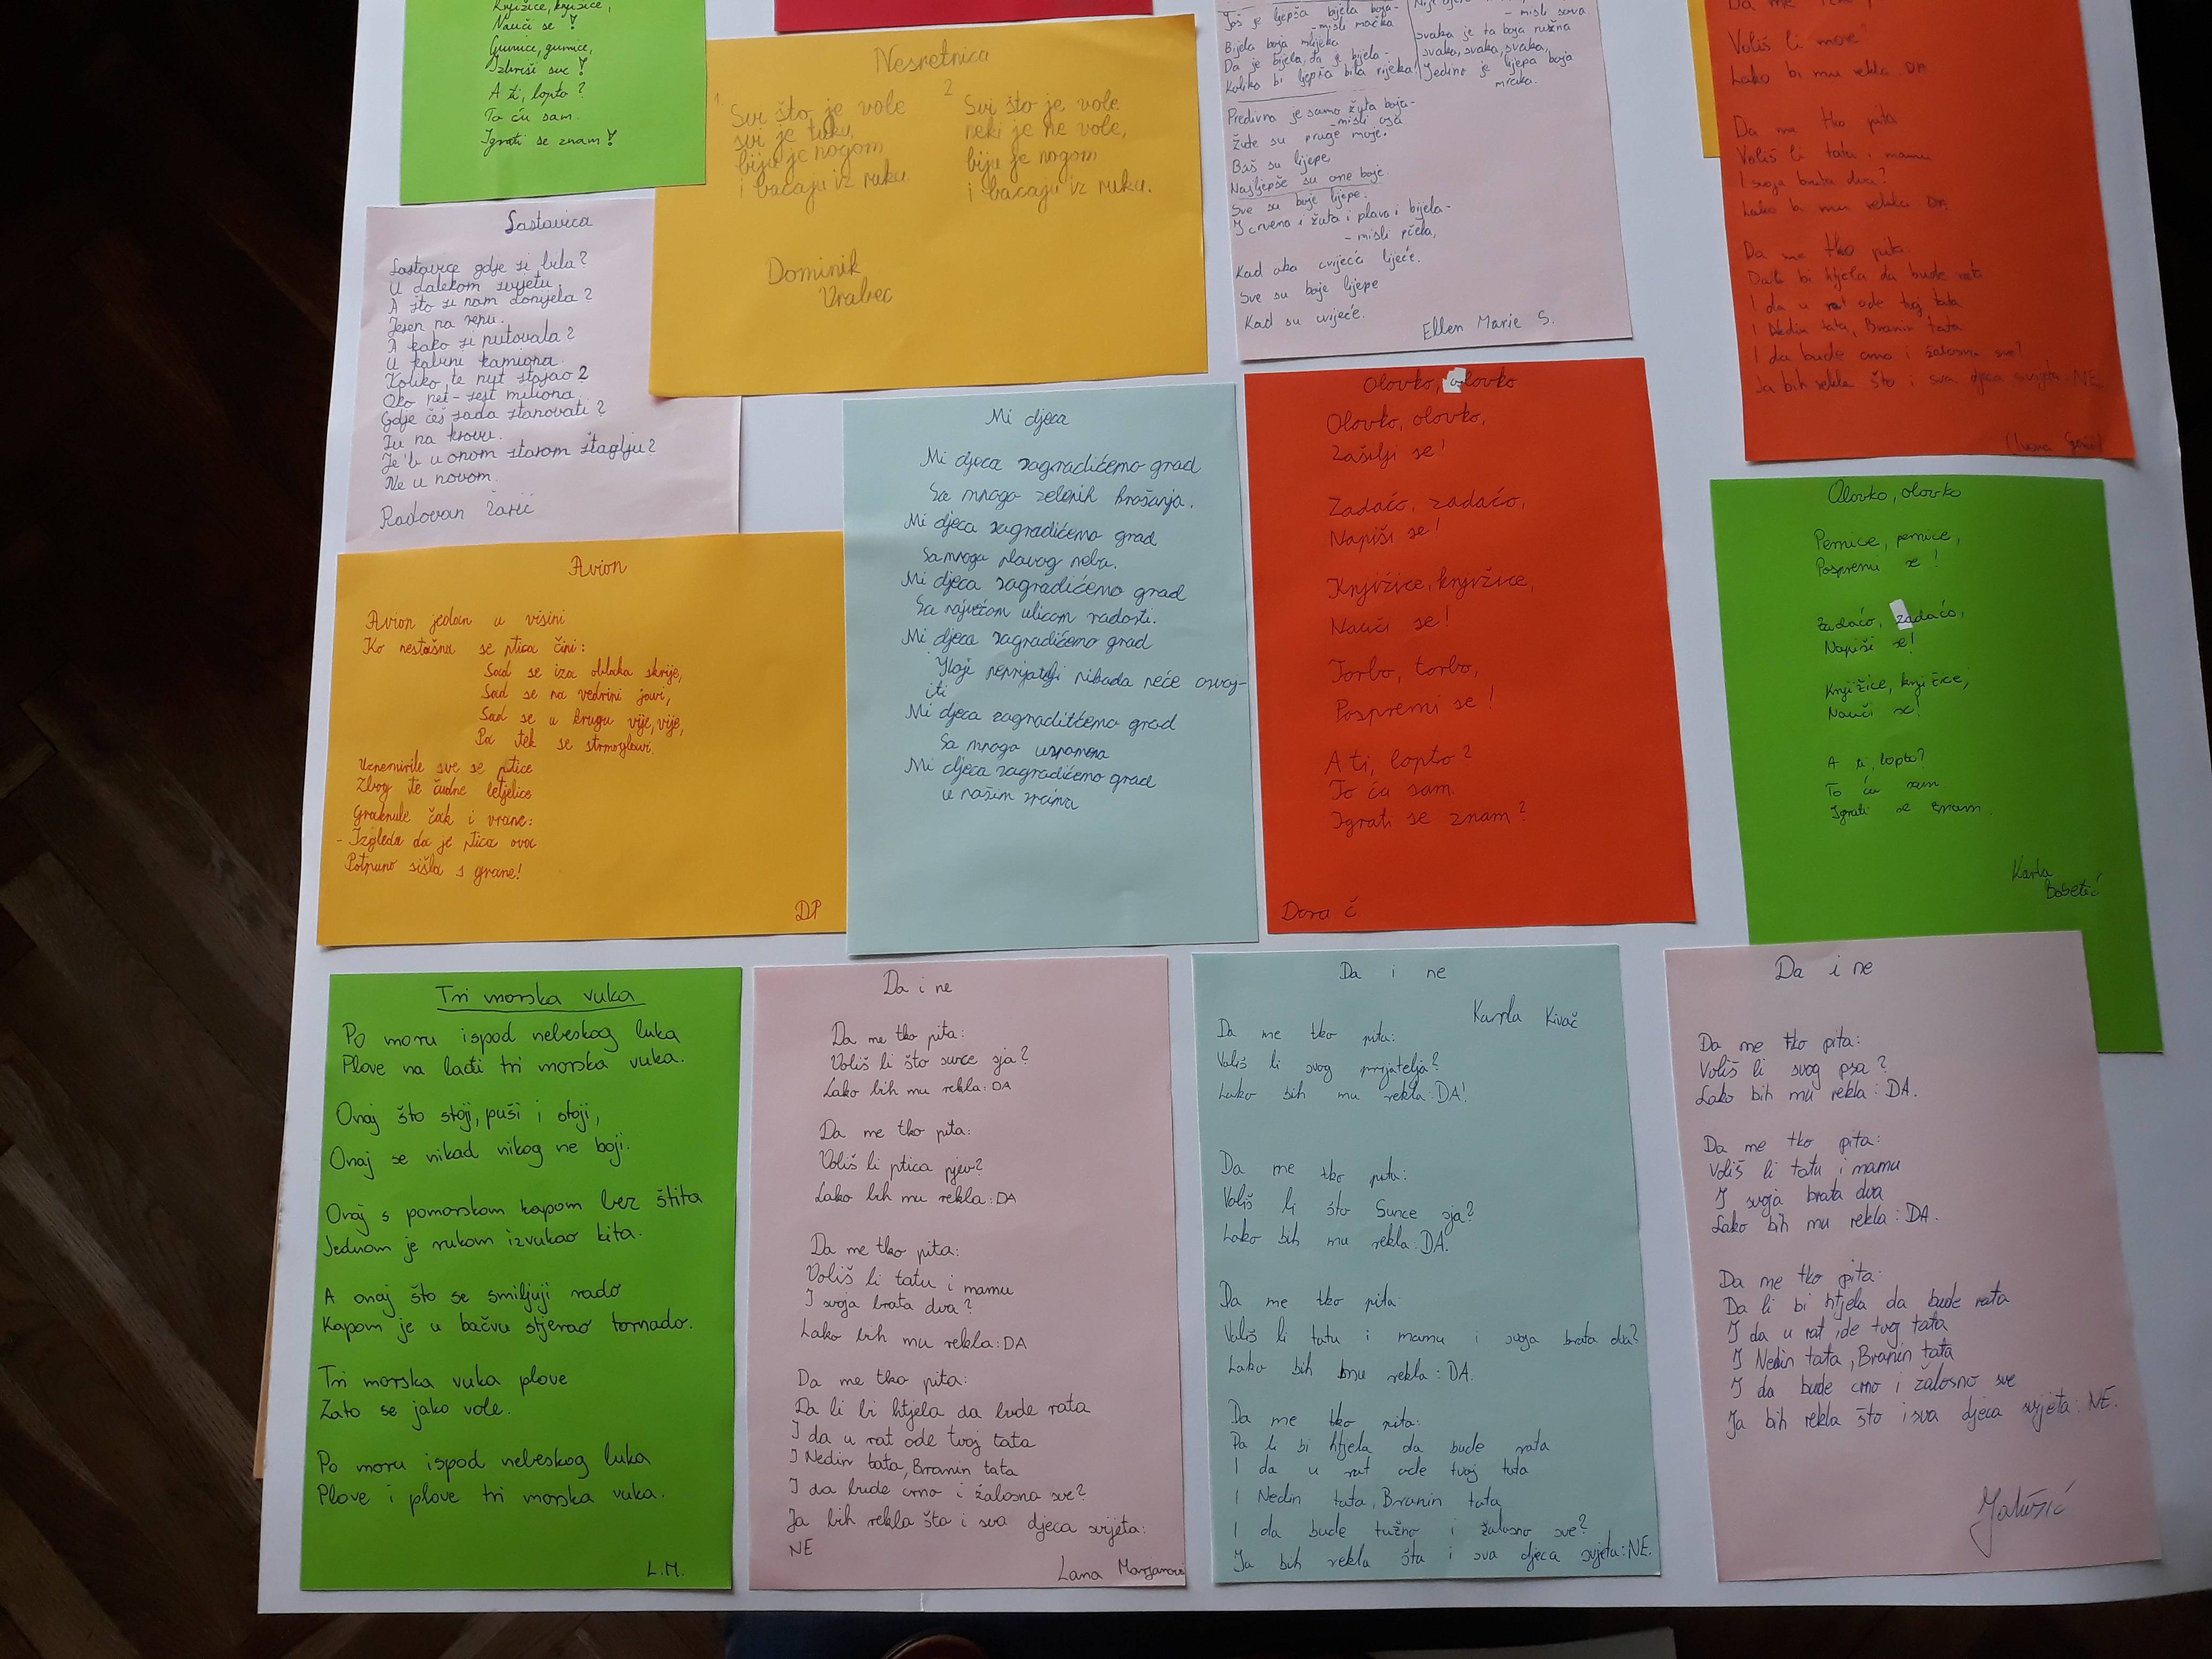 Knjižice, knjižice,
Nauči se!
Gumice, gumice,
Izbriši sve!
A ti, lopto?
To ću sam.
Igrati se znam!
Nesretnica
1.
Svi što je vole
svi je tuku,
biju je nogom
i bacaju iz ruku.
2
Svi što je vole
neki je ne vole,
biju je nogom
i bacaju iz ruku.
Dominik
Vrabec
Još je ljepša bijela boja-
- misli mačka
Bijela boja mlijeka
Da je bijela, da je bijela-
Koliko bi ljepša bila rijeka!
- misli sova
svaka je ta boja ružna
svaka, svaka, svaka,
Jedino je lijepa boja
mraka.
Predivna je samo žuta boja-
- misli osa
Žute su pruge moje.
Baš su lijepe
Najljepše su one boje.
Sve su boje lijepe.
I crvena i žuta i plava i bijela-
- misli pčela,
Kad oko cvijeća lijeće.
Sve su boje lijepe
Kad su cvijeće.
Ellen Marie S.
Da me
Voliš li more?
Lako bi mu rekla DA
Da me tko pita
Voliš li tatu i mamu
I svoja brata dva?
Lako bi mu rekla DA
Da me tko pita
Da li bi htjela da bude rata
I da u rat ode tvoj tata
I Nedin tata, Branin tata
I da bude crno i žalosno sve?
Ja bih rekla što i sva djeca svijeta: NE
Lastavica
Lastavice gdje si bila?
U dalekom svijetu.
A što si nam donijela?
Jesen na repu.
A kako si putovala?
U kabini kamiona.
Koliko te put stajao?
Oko pet-šest miliona.
Gdje ćeš sada stanovati?
Tu na krovu.
Je'l' u onom starom štaglju?
Ne u novom.
Radovan Zarić
Avion
Avion jedan u visini
Ko nestašna se ptica čini:
Sad se iza oblaka skrije,
Sad se na vedrini javi,
Sad se u krugu vije, vije,
Pa tek se strmoglavi.
Uznemirile sve se ptice
Zbog te čudne letjelice
Graknule čak i vrane:
- Izgleda da je ptica ova
Potpuno sišla s grane!
DP
Mi djeca
Mi djeca sagradićemo grad
Sa mnogo zelenih krošanja.
Mi djeca sagradićemo grad
Sa mnogo plavog neba.
Mi djeca sagradićemo grad
Sa najvećom ulicom radosti.
Mi djeca sagradićemo grad
Koji neprijatelji nikada neće osvoj-
iti
Mi djeca sagradićemo grad
Sa mnogo uspomena
Mi djeca sagradićemo grad
u našim srcima
Olovko, olovko
Olovko, olovko,
Zašilji se!
Zadaćo, zadaćo,
Napiši se!
Knjižice, knjižice,
Nauči se!
Torbo, torbo,
Pospremi se!
A ti, lopto?
To ću sam.
Igrati se znam?
Dora Č
Olovko, olovko
Pernice, pernice,
Pospremi se!
Zadaćo, zadaćo,
Napiši se!
Knjižice, knjižice,
Nauči se!
A ti, lopto?
To ću sam
Igrati se znam.
Karla
Bobetić
Tri morska vuka
Po moru ispod nebeskog luka
Plove na lađi tri morska vuka.
Onaj što stoji, puši i stoji,
Onaj se nikad nikog ne boji.
Onaj s pomorskom kapom bez štita
Jednom je rukom izvukao kita.
A onaj što se smiljuji rado
Kapom je u bačvu stjerao tornado.
Tri morska vuka plove
Zato se jako vole.
Po moru ispod nebeskog luka
Plove i plove tri morska vuka.
L.M.
Da i ne
Da me tko pita:
Voliš li što sunce sja?
Lako bih mu rekla: DA
Da me tko pita:
Voliš li ptica pjev?
Lako bih mu rekla: DA
Da me tko pita:
Voliš li tatu i mamu
I svoja brata dva?
Lako bih mu rekla: DA
Da me tko pita:
Da li bi htjela da bude rata
I da u rat ode tvoj tata
I Nedin tata, Branin tata
I da bude crno i žalosna sve?
Ja bih rekla šta i sva djeca svijeta:
NE
Lana
Da i ne
Karla Kivač
Da me tko pita:
Voliš li svog prijatelja?
Lako bih mu rekla: DA!
Da me tko pita:
Voliš li što Sunce sja?
Lako bih mu rekla: DA.
Da me tko pita:
Voliš li tatu i mamu i svoja brata dva?
Lako bih mu rekla: DA.
Da me tko pita:
Da li bi htjela da bude rata
I da u rat ode tvoj tata
I Nedin tata, Branin tata
I da bude tužno i žalosno sve?
Ja bih rekla šta i sva djeca svijeta: NE.
Da i ne
Da me tko pita:
Voliš li svog psa?
Lako bih mu rekla: DA.
Da me tko pita:
Voliš li tatu i mamu
I svoja brata dva
Lako bih mu rekla: DA.
Da me tko pita:
Da li bi htjela da bude rata
I da u rat ide tvoj tata
I Nedin tata, Branin tata
I da bude crno i žalosno sve
Ja bih rekla što i sva djeca svijeta: NE.